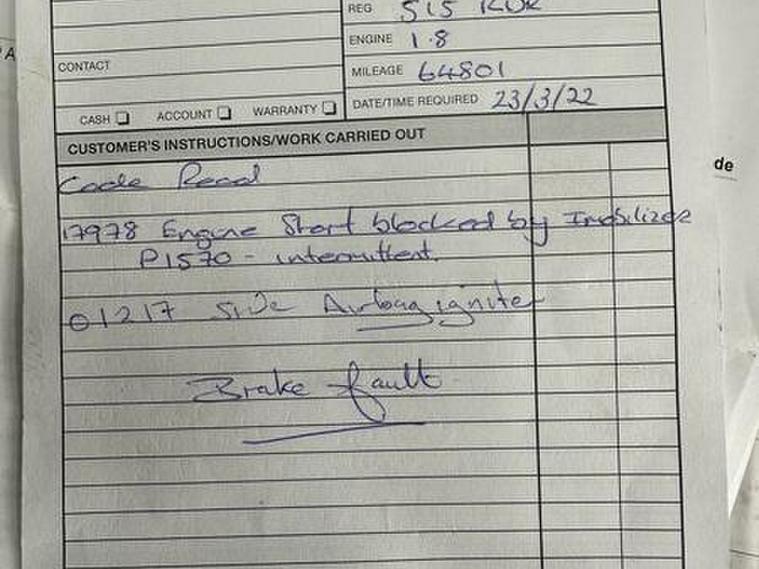 REG S15 
ENGINE 1.8
CONTACT
MILEAGE 64801
CASH ACCOUNT WARRANTY
DATE/TIME REQUIRED 23/3/22
CUSTOMER'S INSTRUCTIONS/WORK CARRIED OUT
de
Code Read
17978 Engine Start blocked by Imobilizer
P1570 - intermittent.
01217 Side Airbag igniter
Brake fault